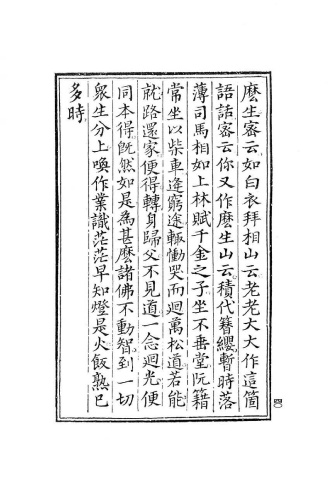 麽生密云如白衣拜相山云老老大大作這箇
語話密云你又作麽生山云積代簪纓暫時落
薄司馬相如上林賦千金之子坐不垂堂阮籍
常坐以柴車逢窮途輙慟哭而迴萬松道若能
就路還家便得轉身歸父不見道一念迴光便
同本得旣然如是為甚麽諸佛不動智到一切
衆生分上喚作業識茫茫早知燈是火飯熟已
多時